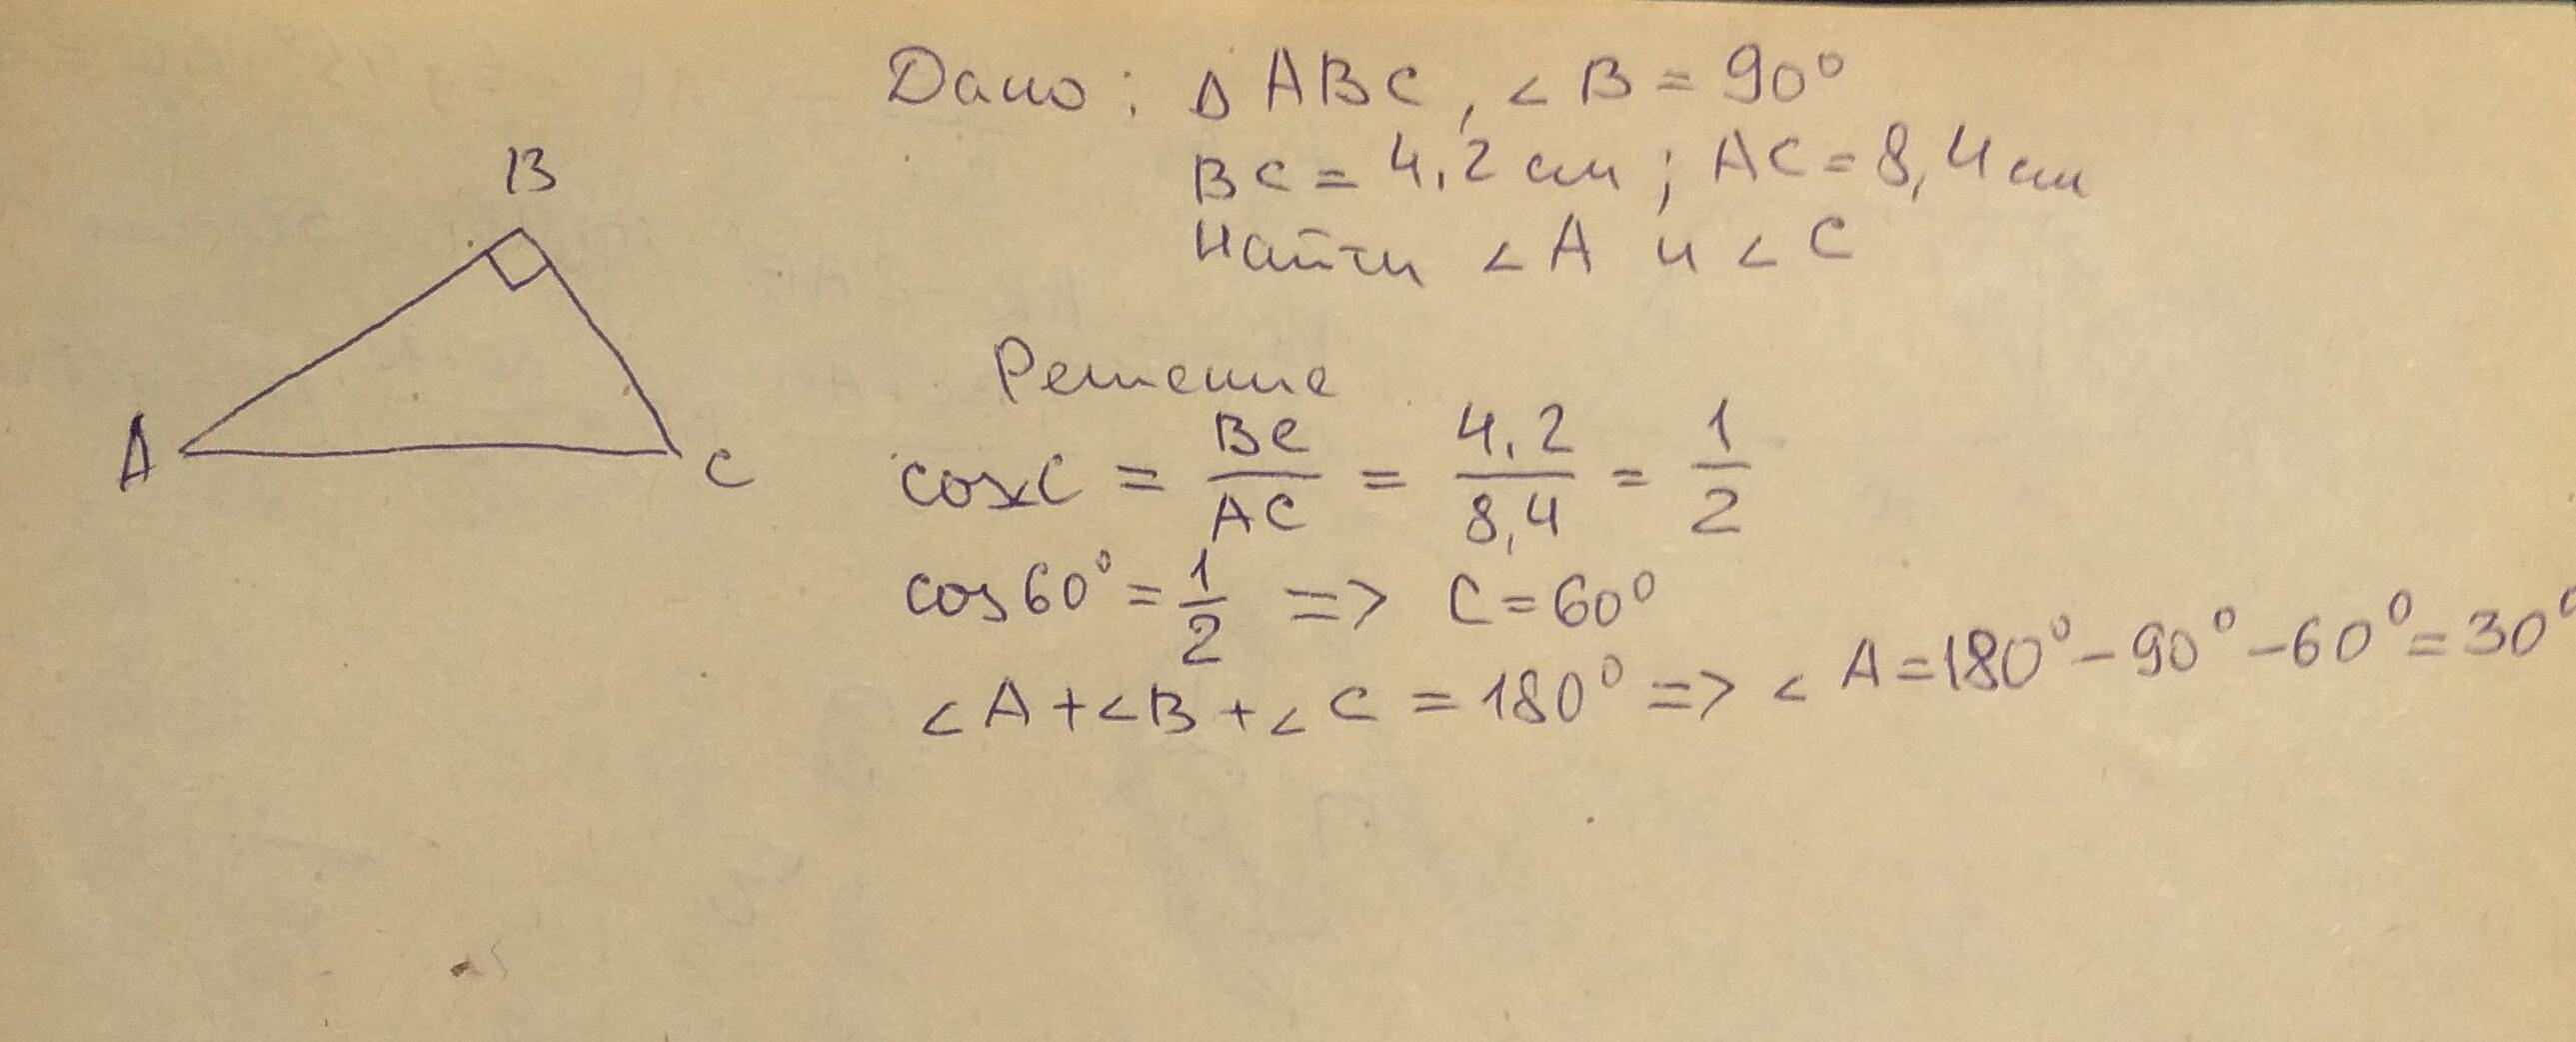 Дано: Δ ABC, ∠B = 90°
BC = 4,2 см; AC = 8,4 см
Найти ∠A и ∠C
B
A
C
Решение
cos∠C = BC/AC = 4,2/8,4 = 1/2
cos60° = 1/2 => C = 60°
∠A + ∠B + ∠C = 180° => ∠A = 180° - 90° - 60° = 30°